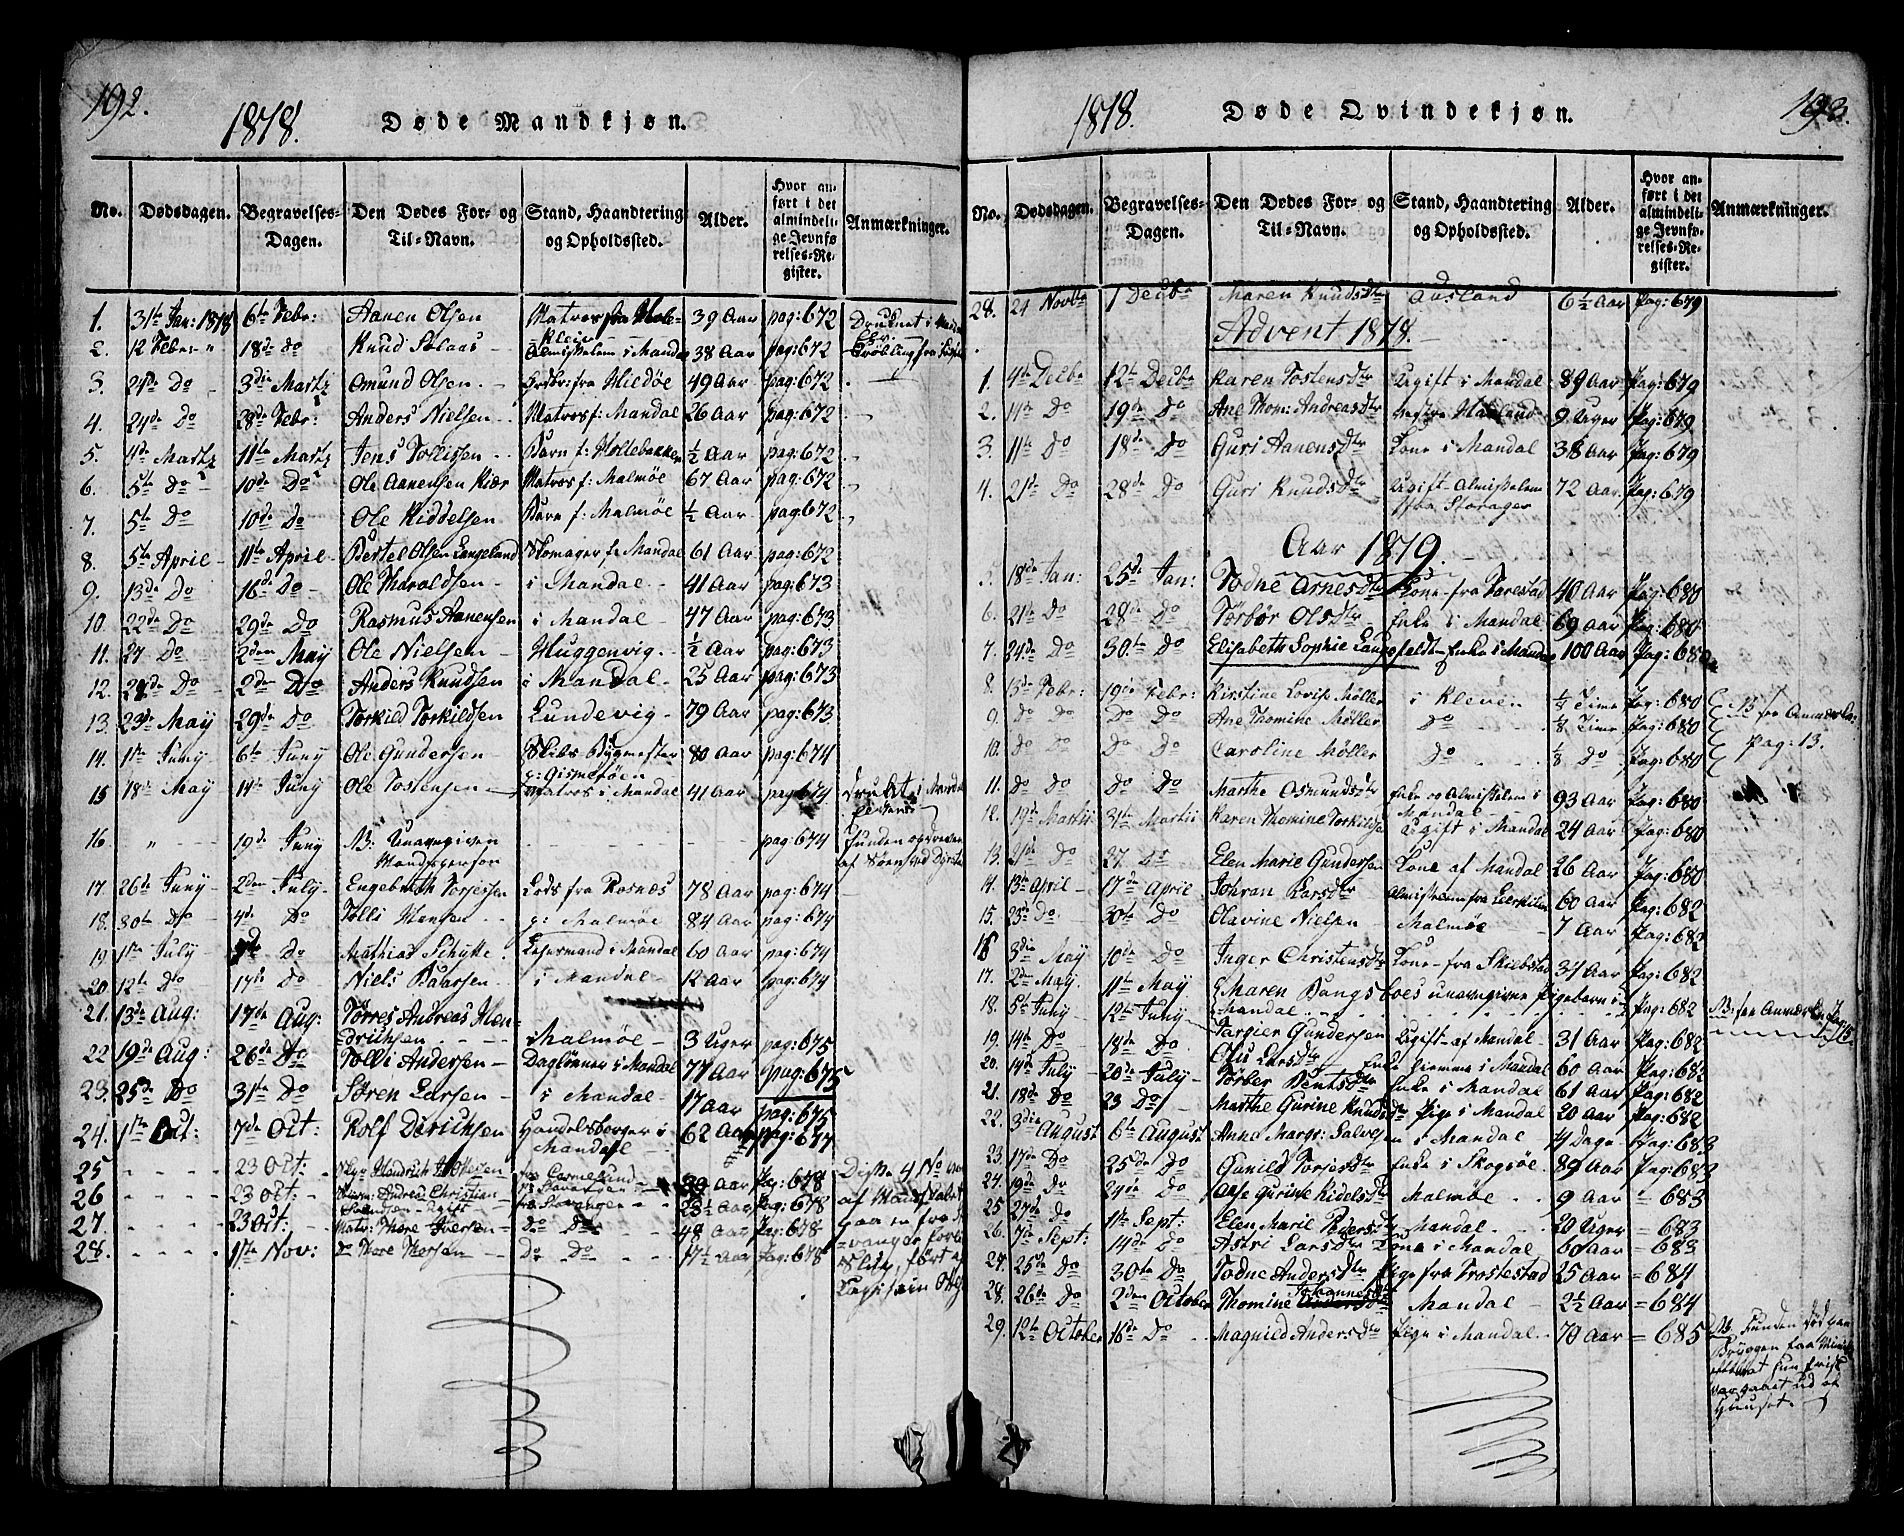 192.
1818.
Døde Mandkjøn.
No. Dødsdagen. Begravelses-Dagen. Den Dødes For- og Til-Navn. Stand, Haandtering og Opholdssted. Alder. Hvor anført i det almindelige Jevnførelses-Register. Anmærkninger.
1. 31te Jan: 1818 6te Febr: Aanen Olsen Matros fra 39 Aar pag: 672 Druknet i
2. 12 Febr: " 18de do Knud Solaas - Almisselem i Mandal 38 Aar pag: 672
3. 24de Do 3die Martz Omund Olsen - fra Hildøe 49 Aar pag: 672
4. 24de Do 28de Febr: Anders Nielsen - Matros f: Mandal 26 Aar pag: 672
5. 4de Martz 11te Martz Jens Tollissen - Barn f: Holtebakken ½ Aar pag: 672
6. 5te do - 10de Do Ole Aanensen Kiær Matros f: Malmøe 67 Aar pag: 672
7. 5te Do 10de Do Ole Kiddelsen Barn f: Malmøe ½ Aar pag: 672
8. 5te April - 11te April - Bertel Olsen Langeland Skomager f: Mandal 61 Aar pag: 672
9. 13de Do 16de Do - Ole Haraldsen - i Mandal - 41 Aar pag: 673
10. 22de Do 29de Do Rasmus Aanensen i Mandal - 47 Aar pag: 673
11. 27 Do 2den May Ole Nielsen - Huggenvig. - ½ Aar pag: 673
12. 28de Do 2den Do Anders Knudsen i Mandal - 25 Aar pag: 673
13. 23de May 29de Do Torkild Torkildsen Lundevig - 79 Aar pag: 673
14. 1ste Juny - 6te Juny Ole Gundersen - Skibs Bygmester p: Gismerøen 80 Aar pag: 674
15 18de May 14de Juny Ole Tostensen - Matros i Mandal 41 Aar pag: 674 Druknet i Mandal
16. " 19de Juny NB: Unavngiven Mandsperson pag: 674 Funden opdreven
17. 26de Juny - 2den July - Engebreth Torjessen Lods fra Rosnæs 78 Aar pag: 674
18. 30te Do - 4de Do Tolli Hansen - p: Malmøe 84 Aar pag: 674
19 11te July - Do Mathias Schytte. i Mandal 60 Aar pag: 674
20 12te Do 17de Do Niels Baarsen - i Mandal - 12 Aar pag: 674
21. 13de Aug: 17de Aug: Tørres Andreas Hendrichsen - i Malmøe - 3 Uger pag: 675
22 19de Aug: 26de Do Tolli Andersen - Dagløner i Mandal 77 Aar pag: 675
23. 25de Do 31te Do Søren Larsen - i Mandal - 17 Aar pag: 675
24. 1ste Oct: 7de Oct: Rolf Dirichsen Handelsborger i Mandal - 62 Aar pag: 677
25 23 Oct: 29 Aar Pag: 678 Disse 4 No
26 23 Oct: - Andreas Christian 23½ Aar Pag: 678
27. 23 Oct: - Matr: Thore Iversen - Do Do 48 Aar Pag: 678
28. 1ste Nov: Do Thore Thorsen - Do Do 17½ Aar Pag: 678 Slup, ført af

193.
1818.
Døde Qvindekjøn.
No. Dødsdagen. Begravelses-Dagen. Den Dødes For- og Til-Navn. Stand, Haandtering og Opholdssted. Alder. Hvor anført i det almindelige Jevnførelses-Register. Anmærkninger.
28. 21 Novbr 1 Decbr Maren Knudsdtr Ausland 6½ Aar Pag: 679
Advent 1818.
1. 4de Decbr 12te Decbr Karen Tostensdtr Ugift i Mandal 89 Aar Pag: 679
2. 11te Do 19de Do Ane Thom: Andreasdtr 9 Uger Pag: 679
3. 11te Do 18de Do Guri Aanensdtr Kone i Mandal 38 Aar Pag: 679
4. 21de Do 28de Do Guri Knudsdtr Ugift Almisselem fra Storager 72 Aar. Pag: 679
Aar 1819.
5. 18de Jan: 25de Jan: Todne Arnesdtr Kone fra Torestad 40 Aar Pag: 680
6. 21de Do 28de Do Torbør Olsdtr - Enke i Mandal 69 Aar Pag: 680
7. 24de Do 30te Do Elisabeth Sophie Langfeldt - Enke i Mandal 100 Aar Pag: 680
8. 13de Febr: 19de Febr: Kirstine Lovise Møller i Kleven ¼ Time Pag: 680 NB see Anmærk:
9. Do Do Do Do Ane Thomine Møller Do ⅛ Time Pag: 680 Pag: 13.
10. Do Do Do Do Caroline Møller Do ⅛ Do Pag: 680
11. Do Do Do Do Marthe Osmundsdtr Enke og Almisselem i Mandal - 93 Aar Pag: 680
12. 19de Martii 31te Martii Karen Thomine Torkildsen Ugift i Mandal 24 Aar Pag: 680
13. 21de Do 27. Do Elen Marie Gundersen Kone af Mandal 26 Aar Pag: 680
14. 13te April - 17de April Johran Larsdtr 60 Aar Pag: 682
15. 23de do. 30te Do Olavine Nielsen - Malmøe - 7 Aar Pag: 682
16 3die May 10de Do Inger Christensdtr Kone fra Skiebstad 34 Aar Pag: 682
17. 2den May. 11te May Maren Bangs Toes unavngivne Pigebørn i Mandal Pag: 682 NB: see Anmærk: Pag 15.
18. 5te Juny 12te Juny - Targier Gundersen Ugift af Mandal - 31 Aar Pag: 682
19. 14de Do 18de Do Olis Larsdtr Enke hiemme i Mandal 60 Aar Pag: 682
20. 14de July 20de July - Tørber Bentsdtr Enke i Mandal 61 Aar Pag: 682
21. 18de Do 23 Do - Marthe Gurine Knudsdtr Pige i Mandal 20 Aar Pag: 682
22. 3die August 6te August Anne Margr: Salvesen i Mandal - 14 Dage - Pag: 683
23. 17de Do 25de Do Gunild Torjesdtr Enke i Skogsøe. 89 Aar Pag: 683
24. 19de do 24de Do Aase Gurine Kidelsdtr Malmøe 9 Aar = 683
25 27de Do 1ste Sept: Elen Marie Pedersdtr Mandal - 20 Uger = 683
26. 7de Sept: 14de Do Astri Larsdtr Kone i Mandal - 60 Aar = 683
27. 25de Do 30te Do Todne Andersdtr Pige fra Trostestad 25 Aar = 684
28. 26de Do 2den October Thomine Johannesdtr Mandal - 2½ Aar = 684
29. 12te October 16de Do Magnild Andersdtr Pige i Mandal - 70 Aar = 685 NB. Funden død paa Bryggen
Huuset.